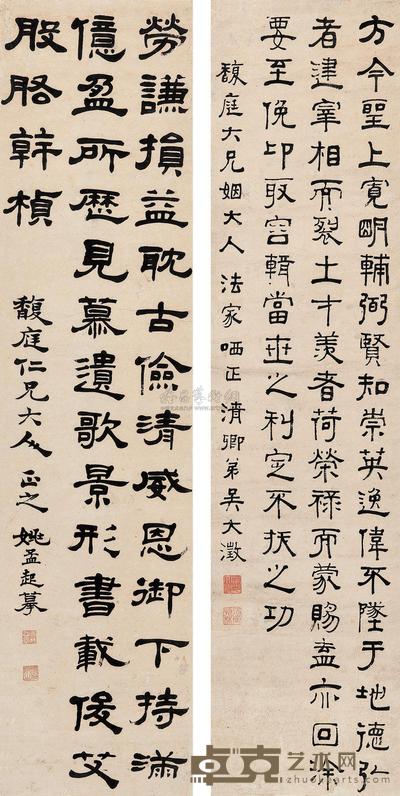 方今聖上寬明輔弼賢知崇英逸偉不墜于地德弘
者建宰相而裂土才羡者荷榮祿而蒙賜盍亦回涂
要至俛卬取容輯當世之利定不拔之功
馥庭大兄姻大人 法家哂正 清卿弟吳大澂
勞謙損益耽古儉清威恩御下持滿
億盈所歷見慕遺歌景形書載俊艾
股肱幹楨
馥庭仁兄大人正之 姚孟起摹
卓克艺术网
www.zhuokearts.com